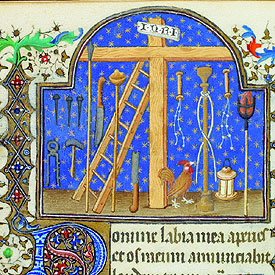 INRI
Domine labia mea apries
et os meum annunciabi